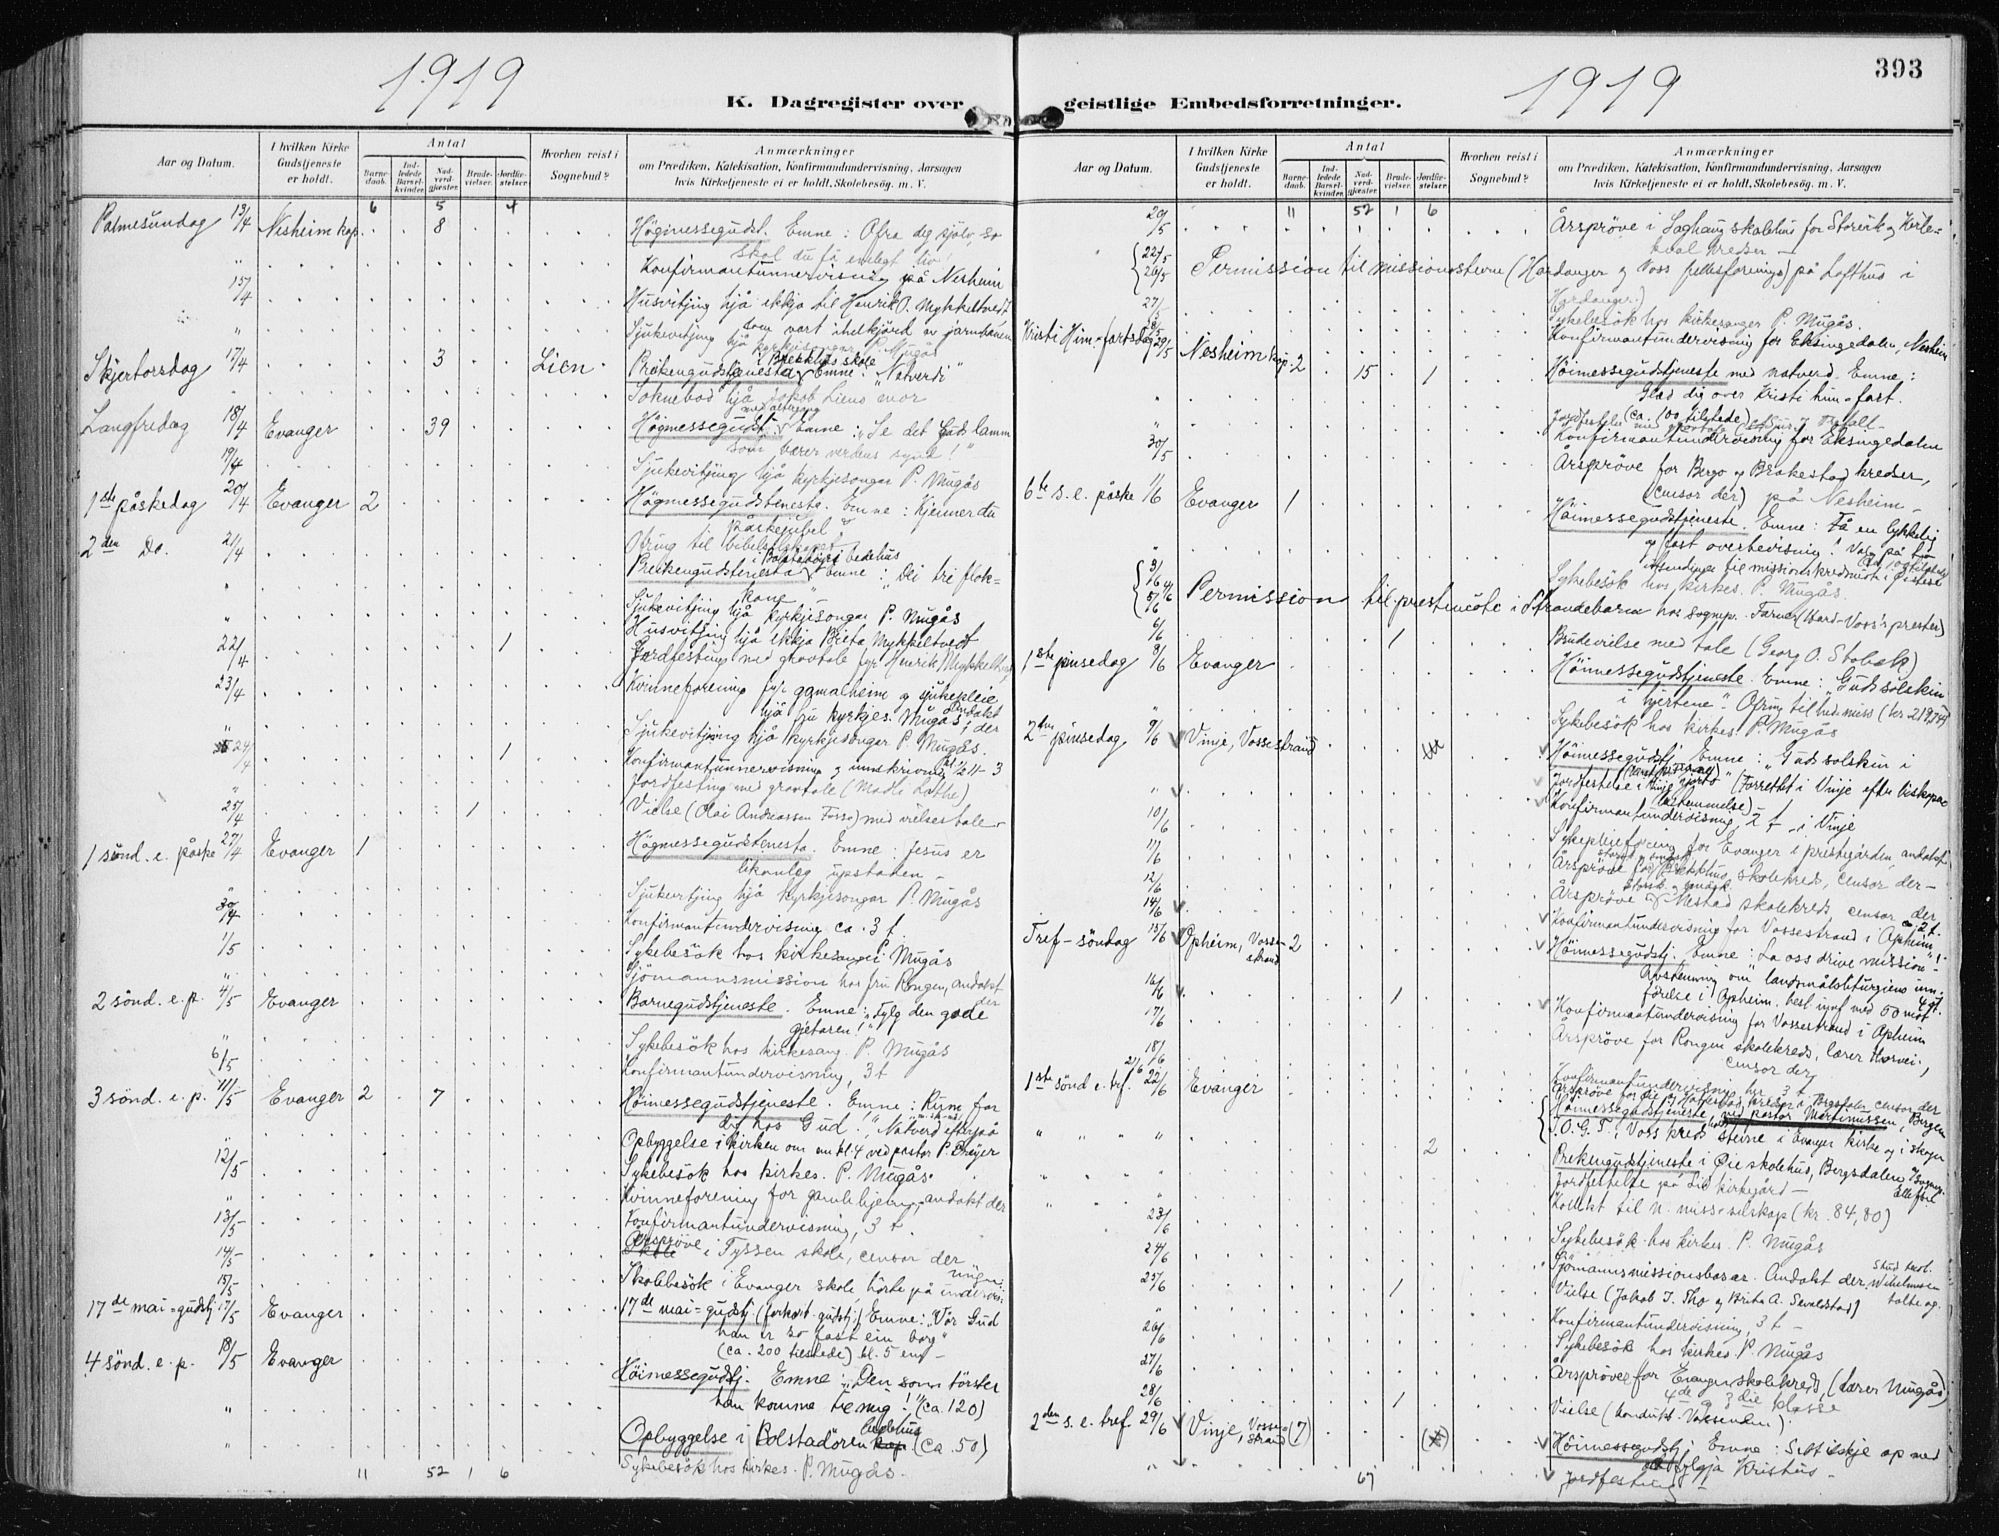 1919
K. Dagregister over
Aar og Datum.
I hvilken Kirke Gudstjeneste er holdt.
Antal
Barnedaab.
Indledede Barselkvinder.
Nadverdgjæster.
Brudevielser.
Jordfæstelser.
Hvorhen reist i Sognebud?
Anmærkninger
om Prædiken, Katekisation, Konfirmandundervisning, Aarsagen
hvis Kirketjeneste ei er holdt, Skolebesøg. m. V.
6 5 4
Palmesundag 13/4 Nesheim kap. 8 Högmessegudst. Emne: Ofra deg sjölv, so
skal du få evlegt liv!
" Konfirmantunnervisning på Nesheim
15/4 Husvitjing hjå ekkja til Henrik O. Mykkeltvedt
som vart ihelkjörd av jarnbanen
" Sjukevitjing hjå kyrkjesongar P. Mugås
Skjertorsdag 17/4 3 Lien Preikengudstenesta i skule Emne: "Natverdi"
" Soknebod hjå Jakob Liens mor
Langfredag 18/4 Evanger 39 Högmessegudst. med altergang Emne: "Se det Guds lamm
som bærer verdens synd!"
19/4 Sjukevitjing hjå kyrkjesongar P. Mugås
1ste påskedag 20/4 Evanger 2 Högmessegudstenesta. Emne: Kjenner du
påskejubel?
Ofring til bibelselskapet
2den Do. 21/4 Preikengudstenesta i bedehus Emne: "Dei tri flokkane"
" Sjukevitjing hjå kyrkjesongar P. Mugås
" Husvitjing hjå ekkja Brita Mykkeltvedt
22/4 1 Jordfesting med gravtale fyr Henrik Mykkeltvedt
23/4 Kvinneforening fyr gamalheim og sjukepleie
hjå fru kyrkjes. Mugås, andakt der
" Sjukevitjing hjå kyrkjesongar P. Mugås.
24/4 1 Konfirmantunnervisning og innskriving kl. 1/2 11-3
" Jordfesting med gravtale (Madli Lothe)
25/4 1 Vielse (Olai Andreassen Fosse) med vielsestale
1 sönd. e. påske 27/4 Evanger 1 Högmessegudstenesta. Emne: Jesus er
likamleg upstaden -
" Sjukevitjing hjå kyrkjesongar P. Mugås
30/4 Konfirmantundervisning ca. 3 t.
1/5 Sykebesök hos kirkesanger Mugås
" Sjömannsmission hos fru Rongen, andakt
der
2 sönd. e. p. 4/5 Evanger Barnegudstjeneste. Emne: "Fylg den gode
gjetaren!"
" Sykebesök hos kirkesang. P. Mugås
6/5 Konfirmantundervisning, 3 t
3 sönd. e. p. 11/5 Evanger 2 7 Höimessegudstjeneste. Emne: Rum for
dei hos Gud. "Natverd efterpå
" Opbyggelse i kirken om em kl. 4 ved pastor P. Dreyer
12/5 Sykebesök hos kirkes. P. Mugås.
" Kvinneforening for gamlehjem, andakt der
13/5 Konfirmantundervisning, 3 t
14/5 Årspröve i Tyssen skole, censor der
15/5 Skolebesök i Evanger skole, hörte på undervisningen
17de mai=gudstj 17/5 Evanger 17de mai=gudstj. (forkort. gudstj.) Emne: "Vår Gud
han er so fast ein borg"
(ca. 200 tilstede) kl. 5 em -
4 sönd. e. p. 18/5 Evanger Höimessegudstj. Emne: "Den som törster
han komme til mig"! (ca. 120)
" Opbyggelse i Bolstadören bedehus (ca. 50)
" Sykebesök hos kirkes. P. Mugås.
11 52 1 6
geistlige Embedsforretninger.
1919
393
Aar og Datum.
I hvilken Kirke Gudstjeneste er holdt.
Antal
Barnedaab.
Indledede Barselkvinder.
Nadverdgjæster.
Brudevielser.
Jordfæstelser.
Hvorhen reist i Sognebud?
Anmærkninger
om Prædiken, Katekisation, Konfirmandundervisning, Aarsagen
hvis Kirketjeneste ei er holdt, Skolebesøg. m. V.
11 52 1 6
20/5 Årspröve i skolehus for og
kredser -
22/5 26/5 Permission til missionsstevne (Hardanger og Voss fellesforening) på Lofthus i
Hardanger.)
27/5 Sykebesök hos kirkesanger P. Mugås.
28/5 Konfirmantundervisning for Eksingedalen, Nesheim
Kristi Him=fartsdag 29/5 Nesheim kap. 2 15 1 Höimessegudstjeneste med natverd. Emne:
Glæd dig over Kristi him=fart.
(ca. 100 tilstede)
" Jordfestelse med gravtale
" Konfirmantundervisning for Eksingedalen
30/5 Årspröve for Bergo og Brakestad kredser,
(censor der) på Nesheim -
6te s. e. påske 1/6 Evanger 1 Höimessegudstjeneste. Emne: Få en lykkelig
og fast overbevisning! Valg på
utsendinger til missionskredsmöte i Öistese
" Sykebesök hos kirkes. P. Mugås.
3/6 4/6 5/6 Permission til prestemöte i Strandebarm hos sognepr. Farner (Hard-Voss's prester)
6/6 1 Brudevielse med tale (Georg O. Stobak)
1ste pinsedag 8/6 Evanger Höimessegudstjeneste. Emne: "Guds solskin
i hjertene". Ofring til miss (kr 219,74)
" Sykebesök hos kirkes. P. Mugås
2den pinsedag 9/6 Vinje, Vossestrand Höimessegudstj. Emne: "Guds solskin i
" Jordfestelse i Vinje (Forrettet i Vinje efter biskopens
bestemmelse)
10/6 Konfirmantundervisning, 2 t - i Vinje
11/6 Sykepleieforening for Evanger i prestegården, andakt
Årspröve for skolekreds, censor der -
12/6 Årspröve Nestad skolekreds, censor der
14/6 Konfirmantundervisning for Vossestrand i Opheim ca. 2 t.
Tref-söndag 15/6 Opheim, Vossestrand 2 Höimessegudstj. Emne: La oss drive mission"!
Avstemning om "landsmålsliturgiens innförelse
i Opheim. besl. innf. med 50 mot 4 st.
16/6 1 Konfirmantundervisning for Vossestrand i Opheim
17/6 Årspröve for Rongen skolekreds, lærer Horvei,
censor der
18/6 Konfirmantundervisning her 3 t
21/6 Årspröve for i Bergsdalen, censor der
1ste sönd e. trf. 22/6 Evanger Höimessegudstjeneste ved pastor Martinussen, Bergen
I.O.G.T.'s Voss kreds stevne i Evanger kirke og i skogen
" " " " 2 Prekengudstjeneste i Öie skolehus, Bergsdalen
" Jordfestelse på kirkegård -
" Kollekt til n. misseselskap (kr. 84,80)
23/6 Sykebesök hos kirkes. P. Mugås
24/6 Sjömannsmissionsbasar. Andakt der, stud. teol. Wilhelmsen talte og.
25/6 1 Vielse (Jakob J. Tho og Brita A. Sevaldstad)
" Konfirmantundervisning, 3 t -
26/6 Sykebesök hos kirkes. P. Mugås
27/6 Årspröve for Evanger skolekreds, (lærer Mugås)
4de og 3die klasse
28/6 1 Vielse (kondukt. Vossenden)
2den s. e. tref. 29/6 Vinje, Vossestrand (7) Höimessegudstj. Emne:
og fylgja Kristus -
" Jordfesting
67